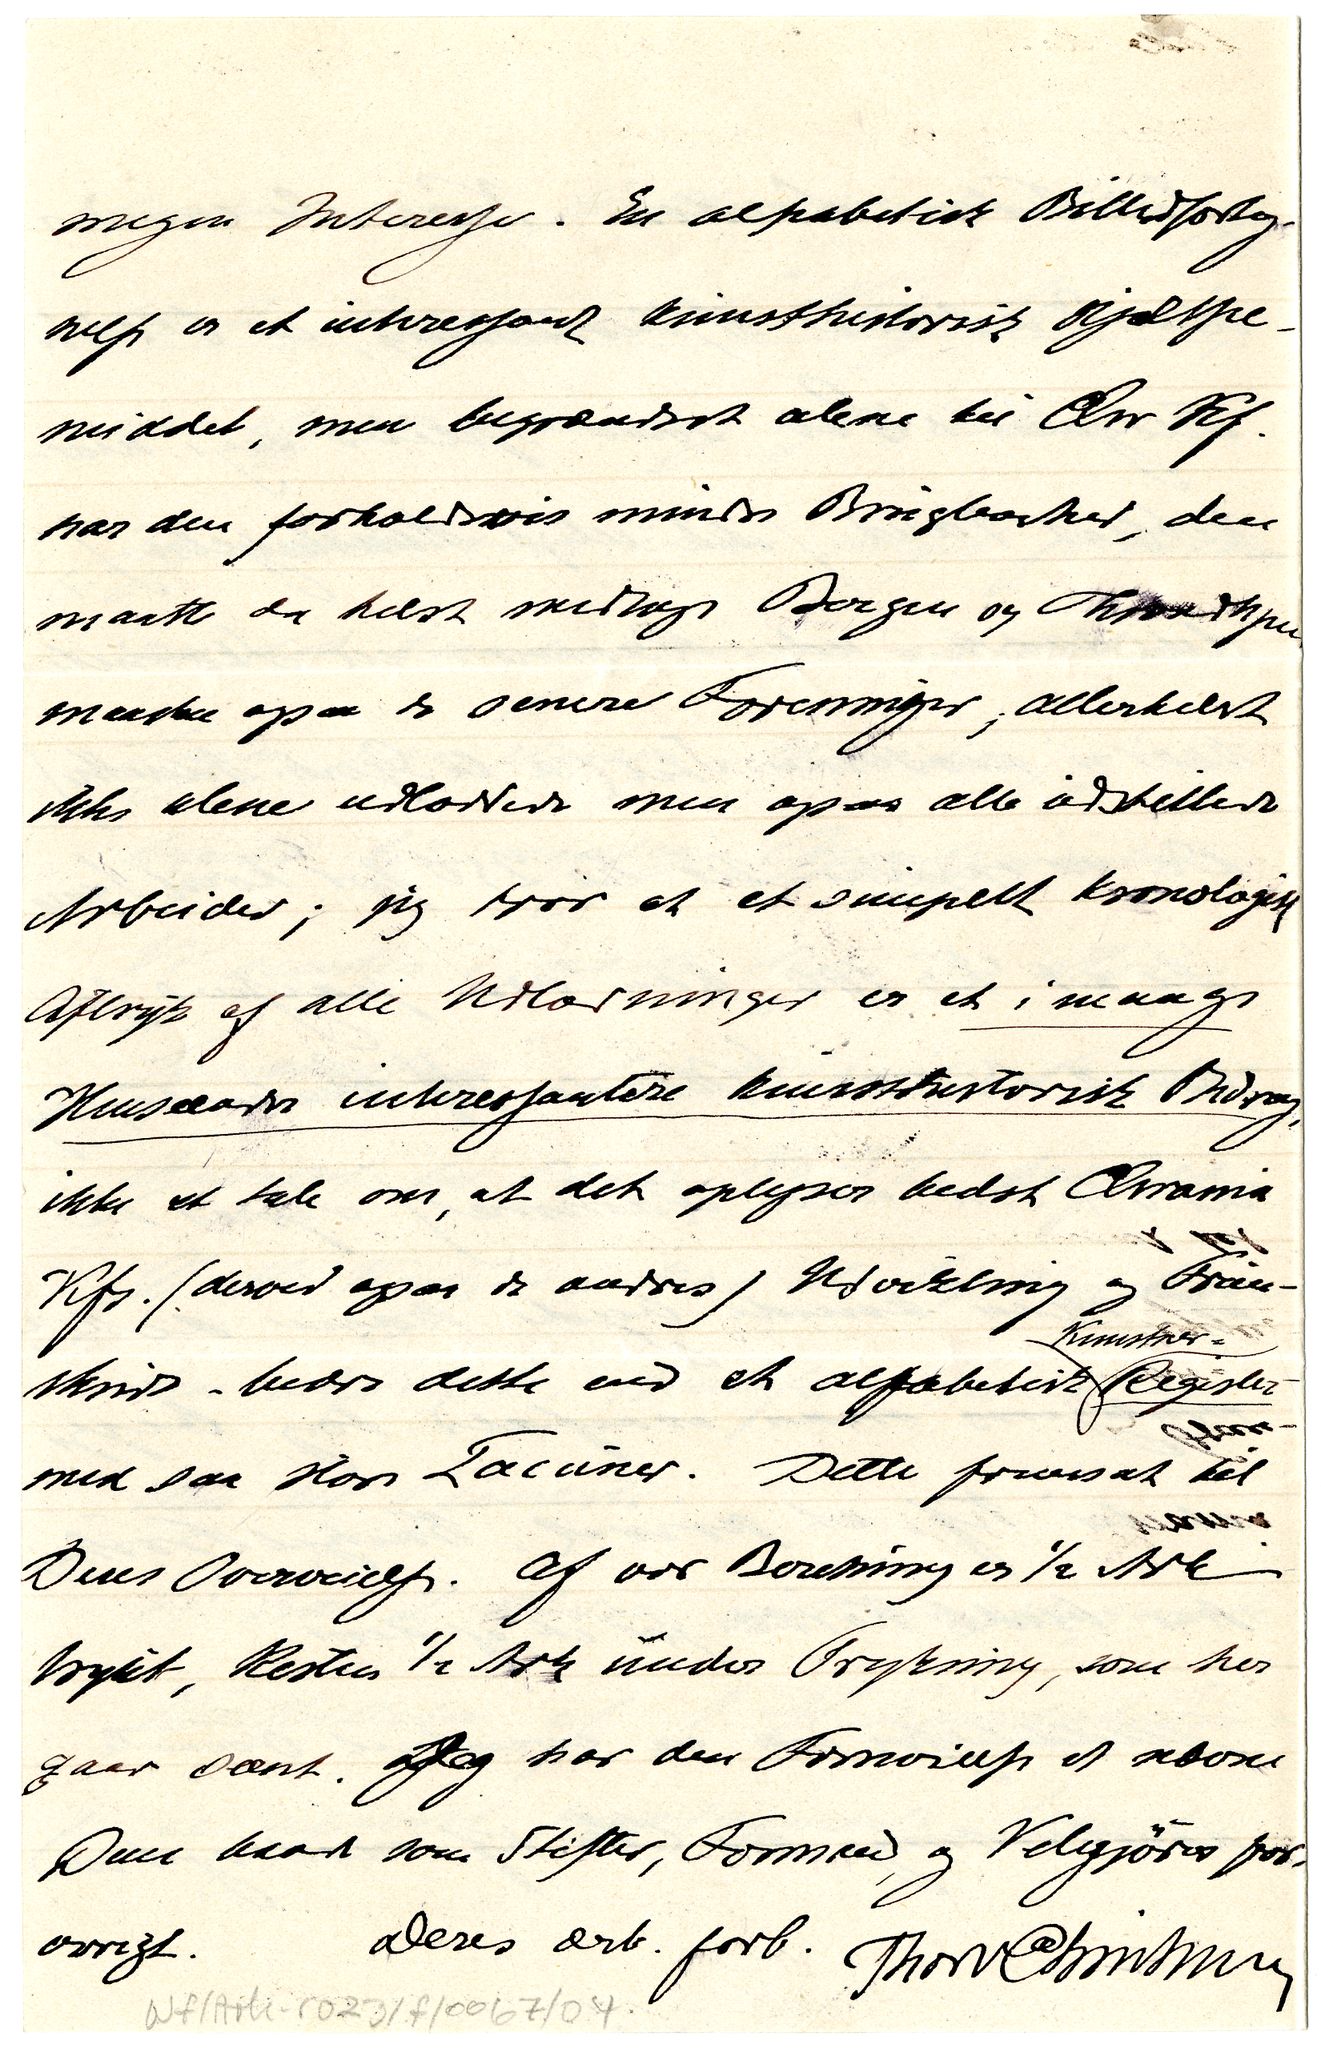 megen Interesse. En alfabetisk Billedforteg-
nelse er et interessant kunsthistorisk Hjælpe-
middel, men begrændset alene til Chr Kf.
har den forholdsvis mindre Brugbarhed, den
maatte da helst medtage Bergen og Throndhjem
maaske ogsaa de senere Foreninger, allerhelst
ikke alene udloddede men ogsaa alle udstillede
Arbeider; jeg tror at et simpelt kronologisk
Aftryk af alle Udlodninger er et i mange
Henseender interessantere kunsthistorisk Bidrag,
ikke at tale om, at det oplyser bedst Chrania
Kfs. (derved ogsaa de andres) Udvikling og Frem-
skridt - bedre dette end et alfabetisk Kunstner-
Register
med saa store Lacuner. Dette fremsat til
Deres Overveielse. Af vor Beretning er 1/2 Ark
trykt, Resten 1/2 Ark under Trykning, som her
gaar sent. Jeg har den Fornøielse at nævne
Dem baade som Stifter, Formand, og Velgjører for-
øvrigt. Deres ærb. forb.
Wf/Ark-1023/f/0067/04.